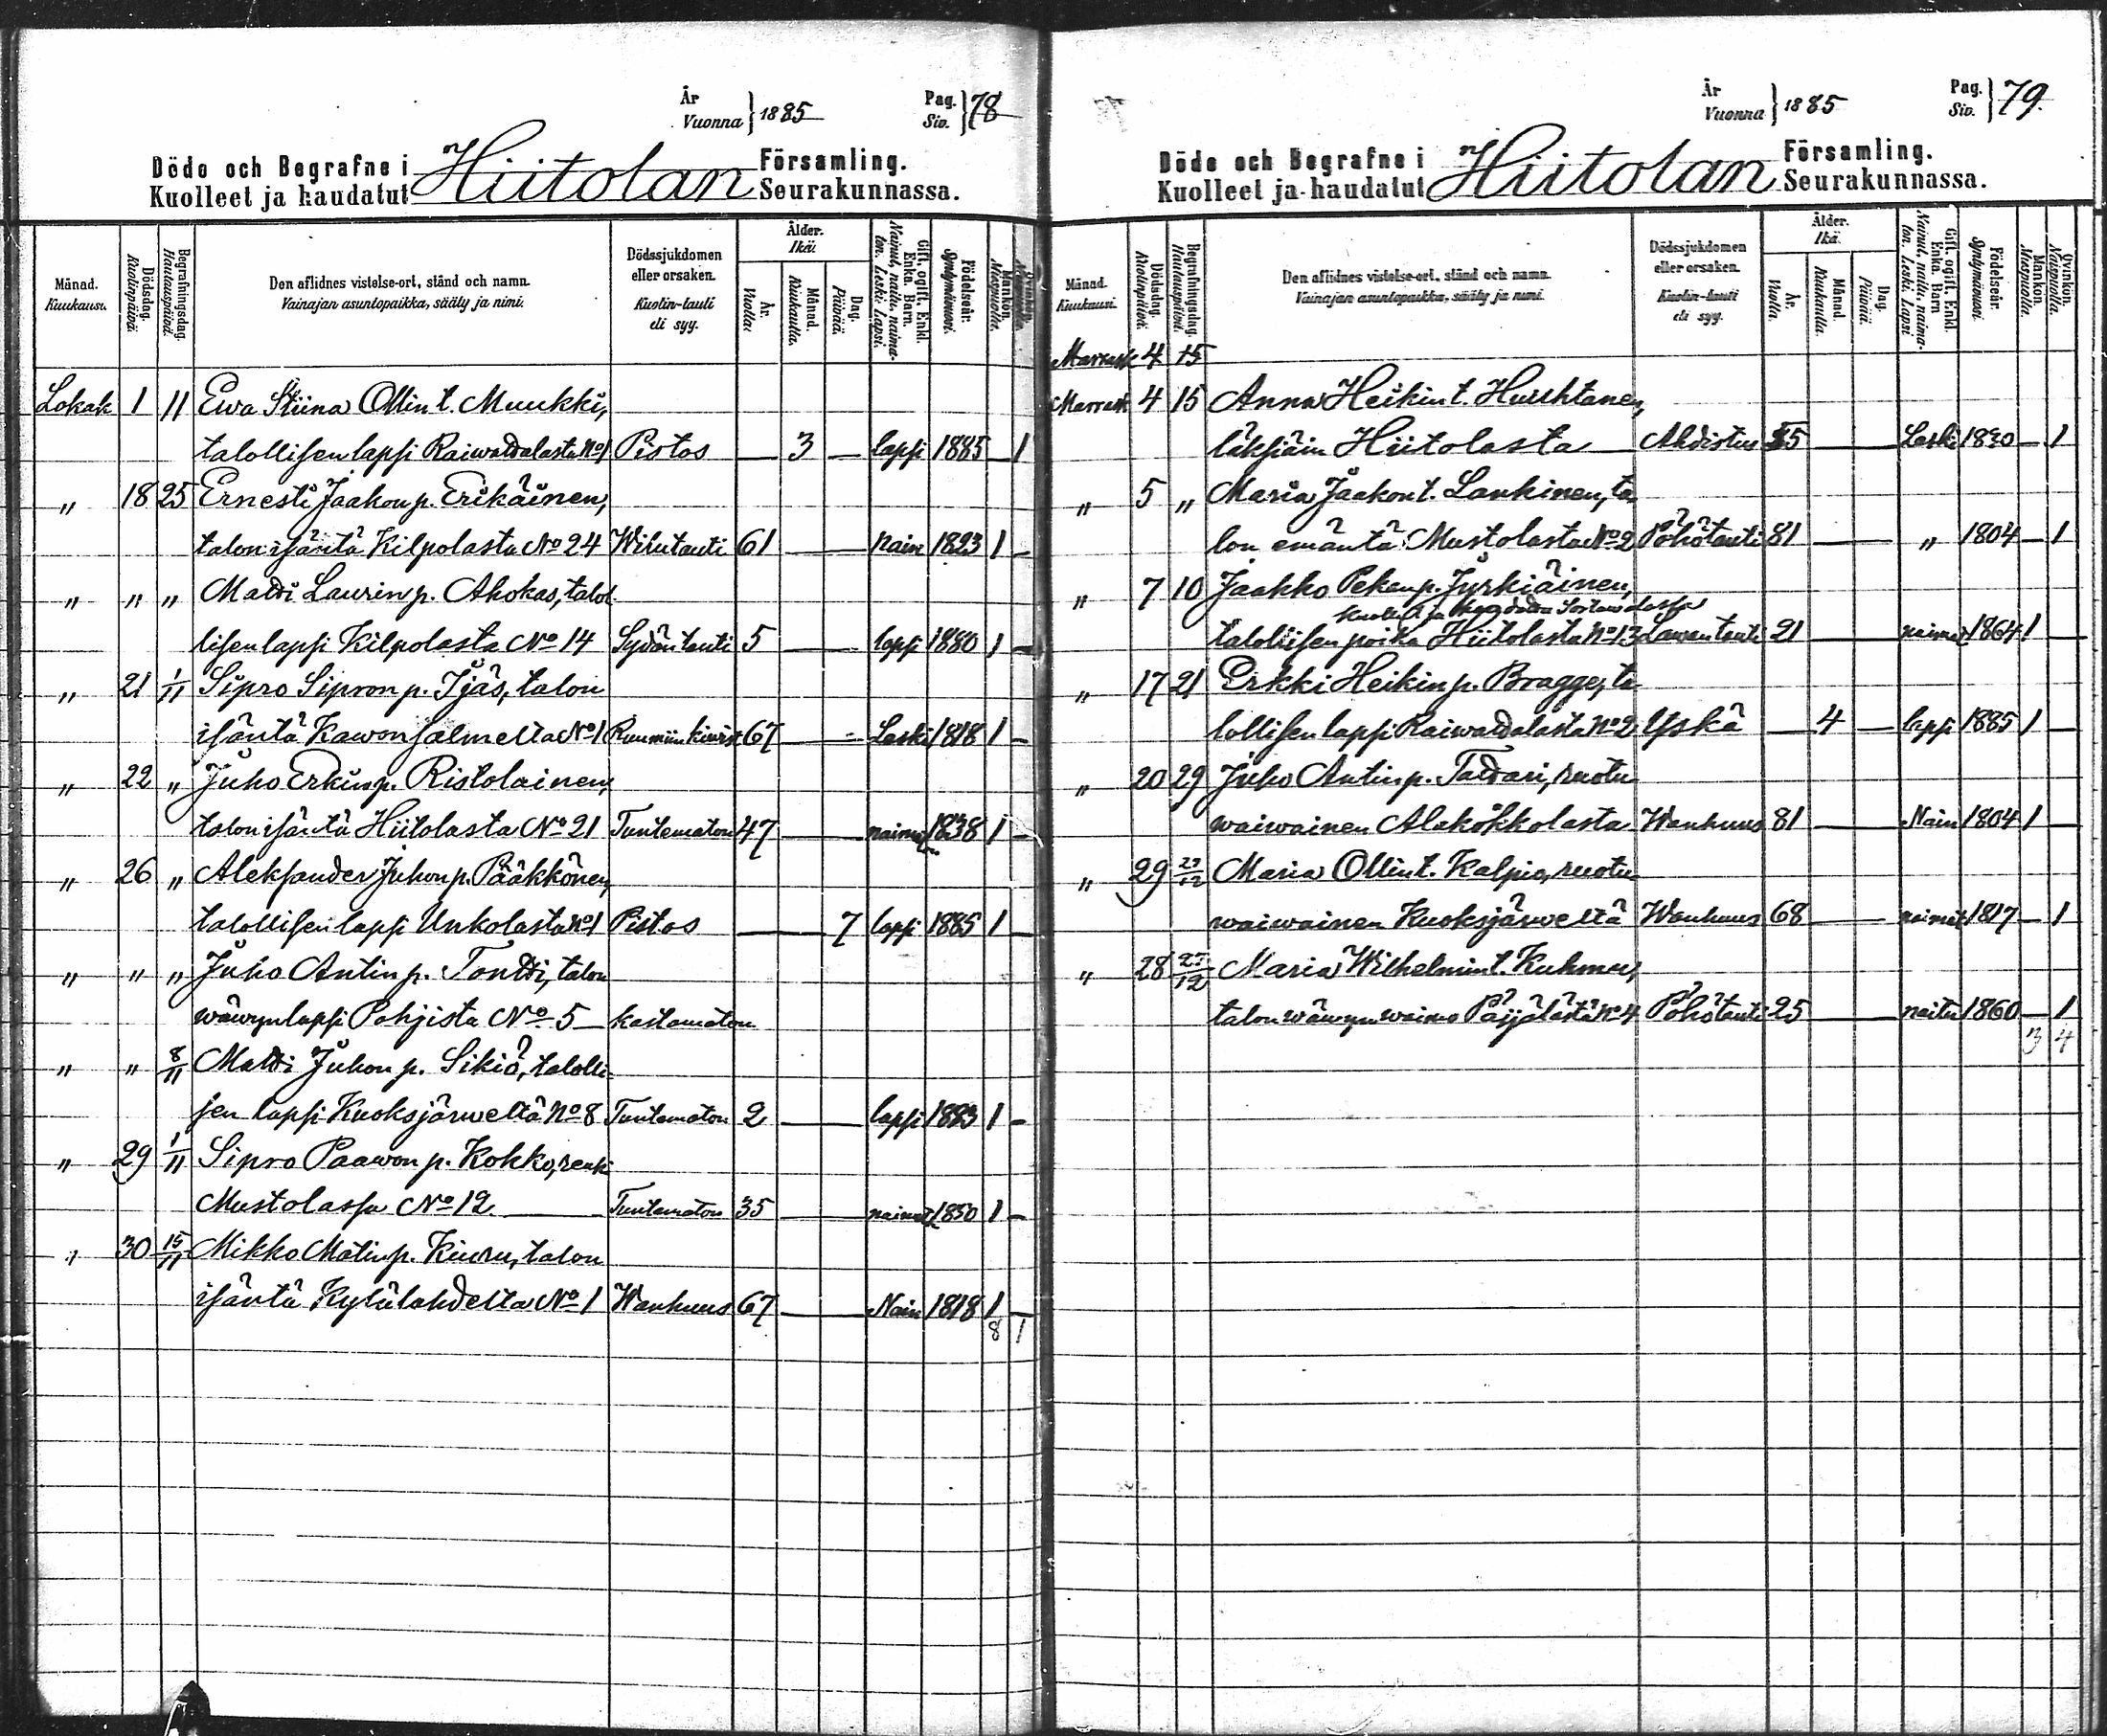 År
Vuonna } 1885
Pag.
Siv. } 78
Döde och Begrafne i Hiitolan Församling.
Kuolleet ja haudatut Seurakunnassa.
Månad. Kuukausi.
Dödsdag. Kuolinpäivä.
Begrafningsdag. Hautauspäivä.
Den aflidnes vistelse-ort, stånd och namn.
Vainajan asuntopaikka, sääty ja nimi.
Dödssjukdomen eller orsaken.
Kuolin-tauti eli syy.
Ålder. Ikä:
År. Vuotta:
Månad. Kuukautta.
Dag. Päivää.
Gift, ogift, Enkl. Enka. Barn.
Nainut, naitu, naimaton. Leski. Lapsi.
Födelseår. Syntymävuosi.
Mankön. Miespuolia.
Qvinkön.
Lokak 1 11 Ewa Stiina Ollin t. Muukki,
talollisen lapsi Raiwattalasta No 1 Pistos — 3 — lapsi 1885 — 1
" 18 25 Ernesti Jaakon p. Erikäinen,
talon isäntä Kilpolasta No 24 Wilutauti 61 — nain 1823 1 —
" " " Matti Laurin p. Ahokas, talol
lisen lapsi Kilpolasta No 14 Sydän tauti 5 — lapsi 1880 1 —
" 21 1/11 Sipro Sipron p. Ijäs, talon
isäntä Kawonsalmelta No 1 67 — Leski 1818 1 —
" 22 " Juho Erkin p. Ristolainen,
talon isäntä Hiitolasta No 21 Tuntematon 47 — 1838 1 —
" 26 " Aleksander Juhon p. Pääkkönen,
talollisen lapsi Unkolasta No 1 Pistos — 7 lapsi 1885 1 —
" " " Juho Antin p. Tontti, talon
wäwyn lapsi Pohjista No 5 — kastamaton
" " 8/11 Matti Juhon p. Sikiö, talolli-
sen lapsi Kuoksjärweltä No 8 Tuntematon 2 — lapsi 1883 1 —
" 29 1/11 Sipro Paawon p. Kokko, renki
Mustolassa No 12 — Tuntematon 35 — naimat 1850 1 —
" 30 15/11 Mikko Matin p. Kiuru, talon
isäntä Kylälahdelta No 1 Wanhuus 67 — Nain 1818 1 —
8 1
År
Vuonna } 1885
Pag.
Siv. } 79.
Döde och Begrafne i Hiitolan Församling.
Kuolleet ja haudatut Seurakunnassa.
Månad. Kuukausi.
Dödsdag. Kuolinpäivä.
Begrafningsdag. Hautauspäivä.
Den aflidnes vistelse-ort, stånd och namn.
Vainajan asuntopaikka, sääty ja nimi.
Dödssjukdomen eller orsaken.
Kuolin-tauti eli syy.
Ålder. Ikä.
År. Vuotta.
Månad. Kuukautta.
Dag. Päivää.
Gift, ogift, Enkl. Enka. Barn
Nainut, naitu, naimaton. Leski. Lapsi
Födelseår. Syntymävuosi.
Mankön. Miespuolia.
Qvinkön. Naispuolia.
Marrask 4 15
Marrask 4 15 Anna Heikin t.
Hiitolasta Ahdistus 55 — Leski 1830 — 1
" 5 " Maria Jaakon t. Lankinen, ta
lon emäntä Mustolasta No 2 Pöhötauti 81 — " 1804 — 1
" 7 10 Jaakko Pekan p. Jyrkiäinen,
talollisen poika Hiitolasta No 13 Lawantauti 21 — naimat 1864 1 —
" 17 21 Erkki Heikin p. Bragge, ta
lollisen lapsi Raiwattalasta No 2 Yskä — 4 — lapsi 1885 1 —
" 20 29 Juho Antin p. Tattari, ruotu
waiwainen Alakokkolasta Wanhuus 81 — Nain 1804 1 —
" 29 27/12 Maria Ollin t. Kalpio, ruotu
waiwainen Kuoksjärweltä Wanhuus 68 — naimat 1817 — 1
" 28 27/12 Maria Wilhelmin t. Kuhmon,
talon wäwyn waimo No 4 Pöhötauti 25 — naitu 1860 — 1
3 4